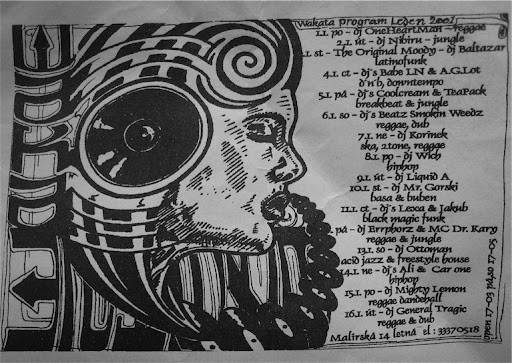 wakata program Leden 2001
1.1. po - dj OneHeartMan - reggae
2.1. út - dj Nibiru - jungle
.1. st - The Original Moody - dj Baltazar
latinofunk
4.1. čt - dj's Babe LN & A.G.Lot
d'n'b, downtempo
5.1. pá - dj's Coolcream & TeaPack
breakbeat & jungle
6.1. so - dj's Beatz Smokin Weedz
reggae, dub
7.1. ne - dj Kořínek
ska, 2tone, reggae
8.1. po - dj Wich
hiphop
9.1. út - dj Liquid A
10.1. st - dj Mr. Gorski
basa & buben
11.1. čt - dj's Lexa & Jakub
black magic funk
pá - dj Errphorz & MC Dr. Kary
reggae & jungle
13.1. so - dj Ottoman
acid jazz & freestyle house
14.1. ne - dj's Ali & Car one
hiphop
15.1. po - dj Mighty Lemon
reggae dancehall
16.1. út - dj General Tragic
reggae & dub
Malířská 14 letná el : 33370518
open 17-03 pá,so 17-05